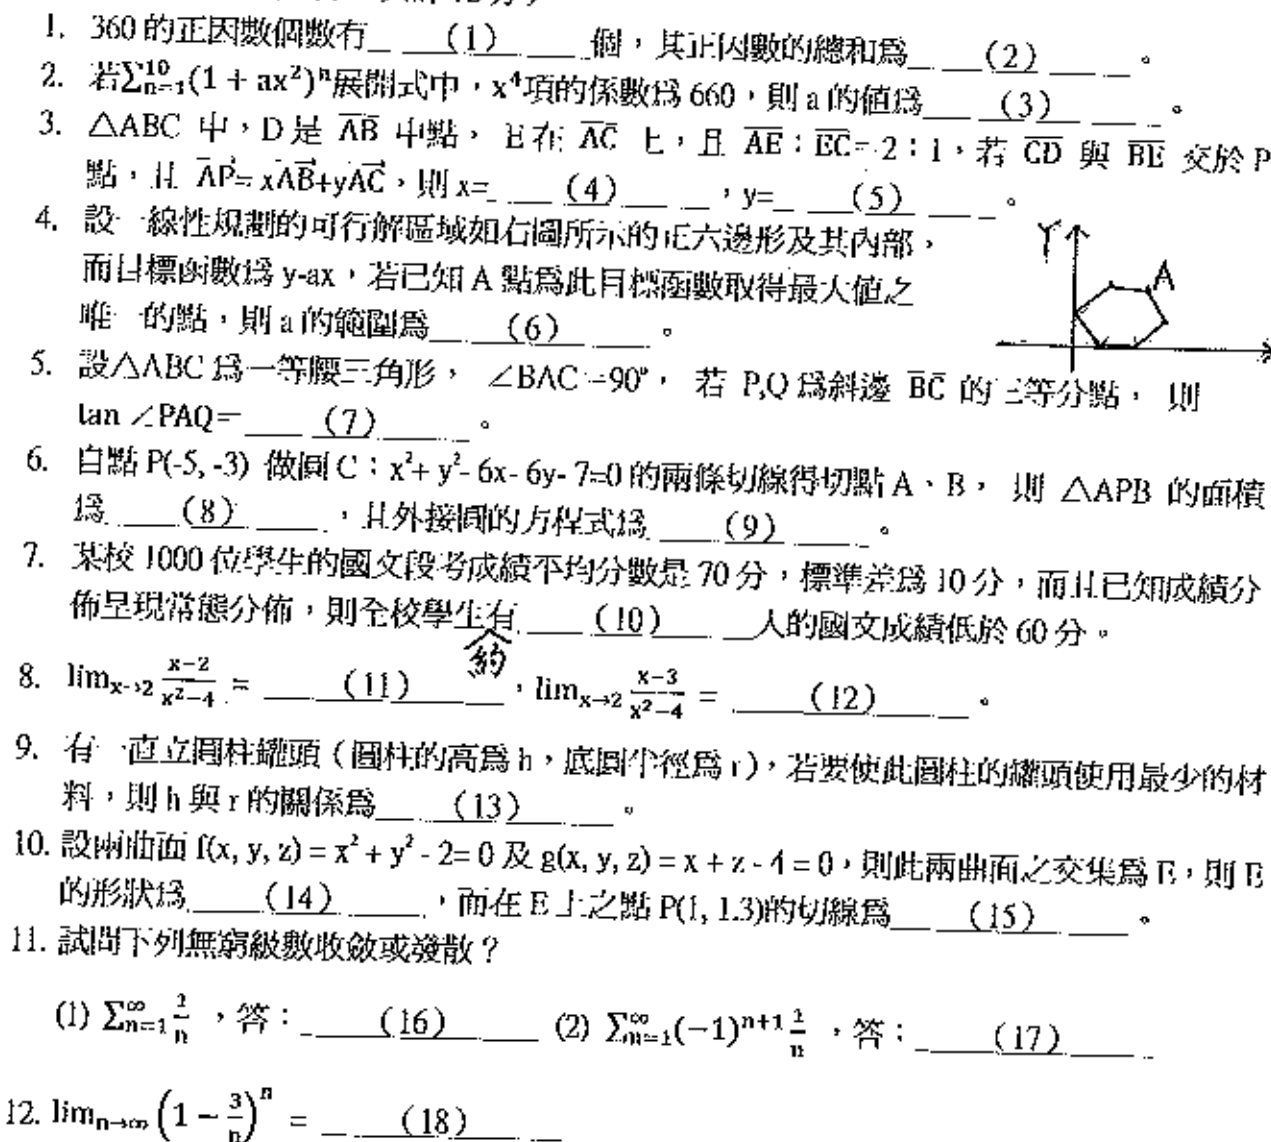 1. 360 的正因數個數有 (1) 個，其正因數的總和爲 (2) 。
2. 若∑_{n=1}^{10}(1 + ax²)ⁿ展開式中，x⁴項的係數爲 660，則 a 的值爲 (3) 。
3. △ABC 中，D 是 A̅B̅ 中點， E 在 A̅C̅ 上，且 A̅E̅：E̅C̅= 2：1，若 C̅D̅ 與 B̅E̅ 交於 P
點，且 AP⃗= xAB⃗+yAC⃗，則 x= (4) ，y= (5) 。
4. 設一線性規劃的可行解區域如右圖所示的正六邊形及其內部，
而目標函數爲 y-ax，若已知 A 點爲此目標函數取得最大值之
唯一的點，則 a 的範圍爲 (6) 。
Y
A
5. 設△ABC 爲一等腰三角形， ∠BAC =90°， 若 P,Q 爲斜邊 B̅C̅ 的三等分點， 則
tan ∠PAQ= (7) 。
6. 自點 P(-5, -3) 做圓 C：x²+ y²- 6x- 6y- 7=0 的兩條切線得切點 A、B， 則 △APB 的面積
爲 (8) ，其外接圓的方程式爲 (9) 。
7. 某校 1000 位學生的國文段考成績平均分數是 70 分，標準差爲 10 分，而且已知成績分
佈呈現常態分佈，則全校學生有 (10) 人的國文成績低於 60 分。
約
8. lim_{x→2} (x−2)/(x²−4) = (11) ，lim_{x→2} (x−3)/(x²−4) = (12) 。
9. 有一直立圓柱罐頭（圓柱的高爲 h，底圓半徑爲 r)，若要使此圓柱的罐頭使用最少的材
料，則 h 與 r 的關係爲 (13) 。
10. 設兩曲面 f(x, y, z) = x² + y² - 2= 0 及 g(x, y, z) = x + z - 4 = 0，則此兩曲面之交集爲 E，則 E
的形狀爲 (14) ，而在 E 上之點 P(1, 1.3)的切線爲 (15) 。
11. 試問下列無窮級數收斂或發散？
(1) ∑_{n=1}^{∞} 1/n ，答： (16) (2) ∑_{n=1}^{∞}(−1)^{n+1} 1/n ，答： (17)
12. lim_{n→∞} (1 − 3/n)ⁿ = (18)